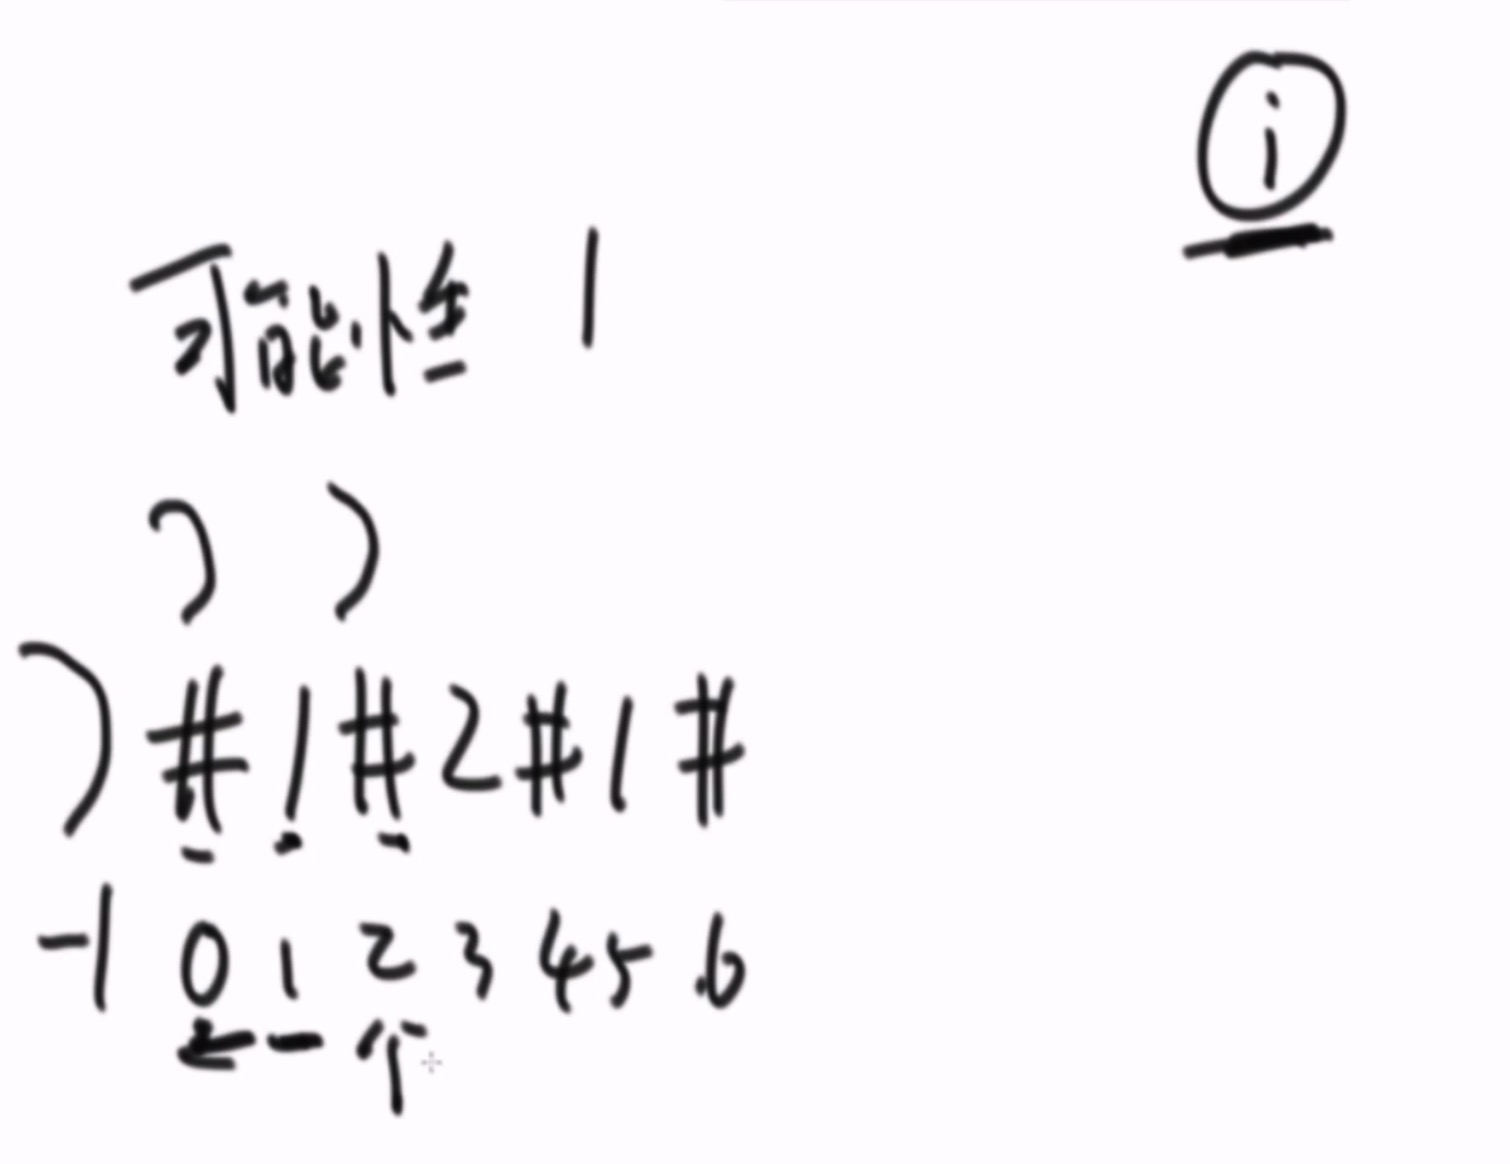 i
可能性 1
) )
) # 1 # 2 # 1 #
-1 0 1 2 3 4 5 6